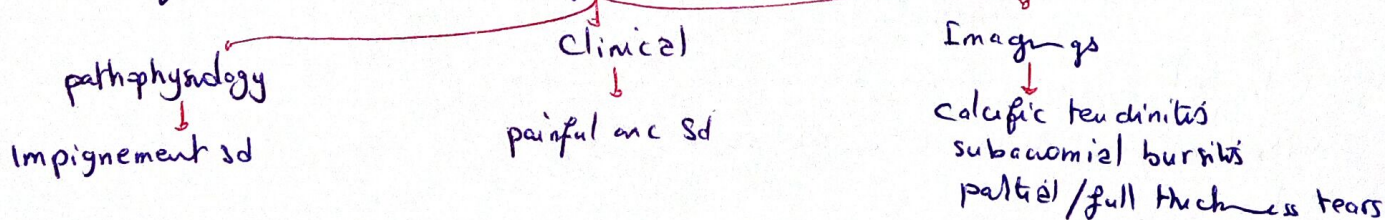 pathophysiology
Impignement sd
Clinical
painful arc sd
Imagings
calcific tendinitis
subacromial bursitis
partial/full thickness tears